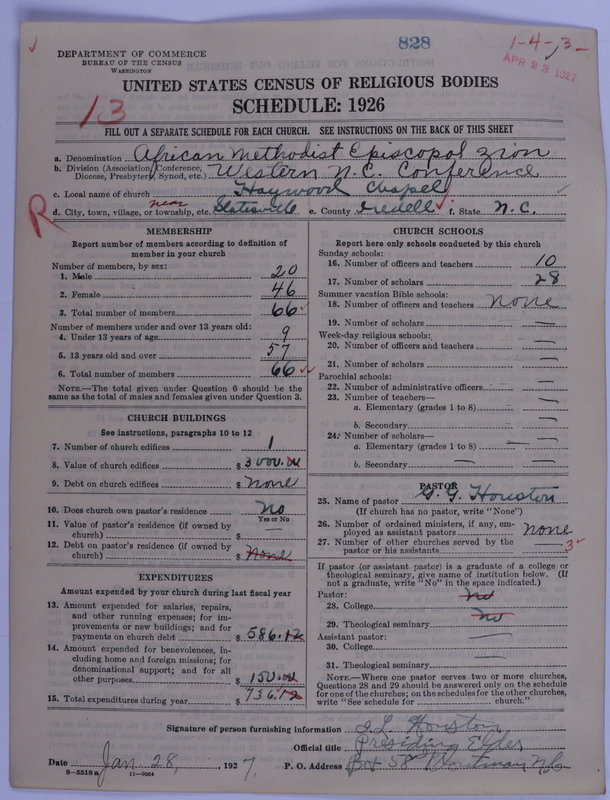 828
1-4-3-
APR 23 1927
DEPARTMENT OF COMMERCE
BUREAU OF THE CENSUS
WASHINGTON
UNITED STATES CENSUS OF RELIGIOUS BODIES
13
SCHEDULE: 1926
FILL OUT A SEPARATE SCHEDULE FOR EACH CHURCH. SEE INSTRUCTIONS ON THE BACK OF THIS SHEET
a. Denomination African Methodist Episcopal Zion
b. Division (Association, Conference, Diocese, Presbytery, Synod, etc.) Western N.C. Conference
c. Local name of church Haywood Chapel
R
d. City, town, village, or township, etc. near Statesville e. County Iredell f. State N.C.
MEMBERSHIP
Report number of members according to definition of
member in your church
Number of members, by sex:
1. Male 20
2. Female 46
3. Total number of members 66
Number of members under and over 13 years old:
4. Under 13 years of age 9
5. 13 years old and over 57
6. Total number of members 66
NOTE.—The total given under Question 6 should be
same as the total of males and females given under Question 3.
CHURCH BUILDINGS
See instructions, paragraphs 10 to 12
7. Number of church edifices 1
8. Value of church edifices $ 3000.00
9. Debt on church edifices $ None
10. Does church own pastor's residence No
Yes or No
11. Value of pastor's residence (if owned by
church) $ —
12. Debt on pastor's residence (if owned by
church) $ None
EXPENDITURES
Amount expended by your church during last fiscal year
13. Amount expended for salaries, repairs,
and other running expenses; for im-
provements or new buildings; and for
payments on church debt $ 586.12
14. Amount expended for benevolences, in-
cluding home and foreign missions; for
denominational support; and for all
other purposes $ 150.00
15. Total expenditures during year $ 736.12
CHURCH SCHOOLS
Report here only schools conducted by this church
Sunday schools:
16. Number of officers and teachers 10
17. Number of scholars 28
Summer vacation Bible schools:
18. Number of officers and teachers None
19. Number of scholars —
Week-day religious schools:
20. Number of officers and teachers —
21. Number of scholars —
Parochial schools:
22. Number of administrative officers —
23. Number of teachers—
a. Elementary (grades 1 to 8) —
b. Secondary —
24. Number of scholars—
a. Elementary (grades 1 to 8) —
b. Secondary —
PASTOR
25. Name of pastor G. G. Houston
(If church has no pastor, write "None")
26. Number of ordained ministers, if any, em-
ployed as assistant pastors None
27. Number of other churches served by the
pastor or his assistants 3
If pastor (or assistant pastor) is a graduate of a college or
theological seminary, give name of institution below. (If
not a graduate, write "No" in the space indicated.)
Pastor:
28. College No
29. Theological seminary No
Assistant pastor:
30. College —
31. Theological seminary —
NOTE.—Where one pastor serves two or more churches,
Questions 28 and 29 should be answered only on the schedule
for one of the churches; on the schedules for the other churches,
write "See schedule for church."
Signature of person furnishing information Houston
Official title Presiding Elder
Date Jan. 28, 1927. P. O. Address Box 58 N.C.
8-5518 a 11-9054